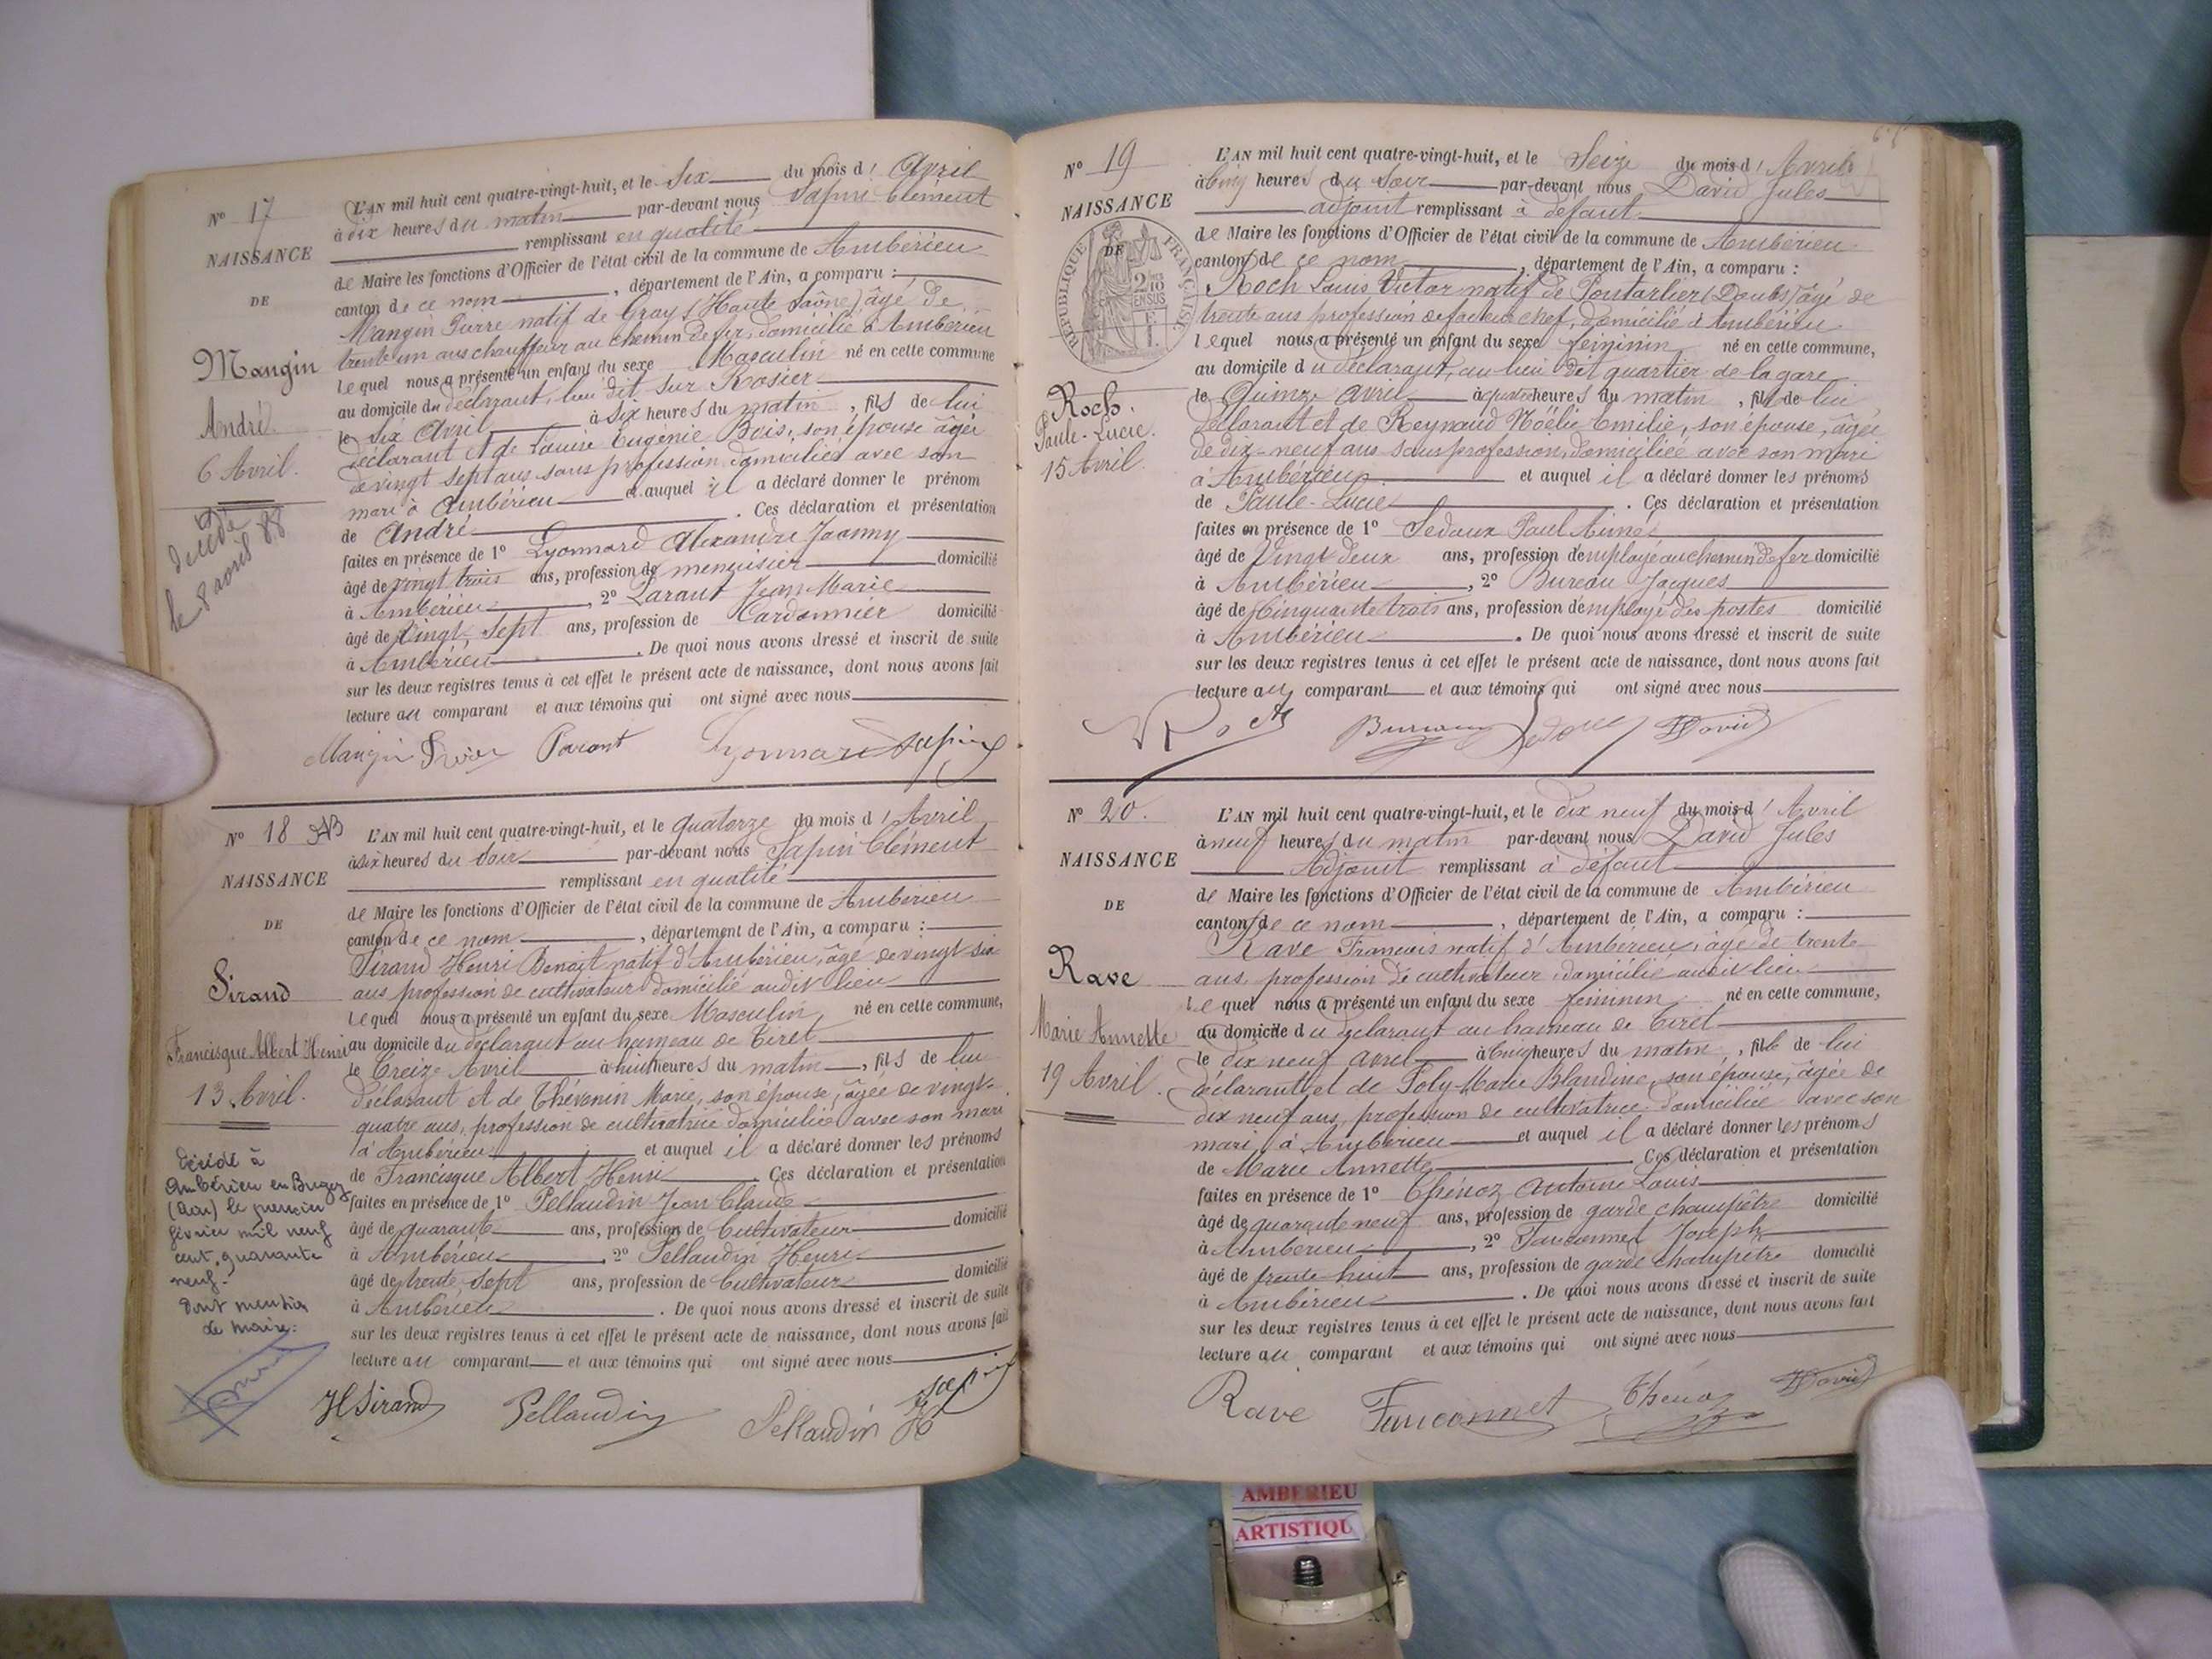 N° 17
NAISSANCE
DE
Mangin
André
6 Avril.
décédé
le 8 avril 88
L'AN mil huit cent quatre-vingt-huit, et le Six du mois d' Avril
à dix heures du matin par-devant nous Sapin Clément
remplissant en qualité
de Maire les fonctions d'Officier de l'état civil de la commune de Ambérieu
canton de ce nom, département de l'Ain, a comparu :
Mangin Pierre natif de Gray (Haute Saône) âgé de
trente un ans chauffeur au chemin de fer, domicilié à Ambérieu
lequel nous a présenté un enfant du sexe Masculin né en cette commune
au domicile du déclarant, lieu dit sur Rosier
le Six Avril à Six heures du matin, fils de lui
déclarant et de Louise Eugénie Bois, son épouse âgée
de vingt sept ans sans profession domiciliée avec son
mari à Ambérieu et auquel il a déclaré donner le prénom
de André. Ces déclaration et présentation
faites en présence de 1° Lyonnard Alexandre Joanny
âgé de vingt trois ans, profession de menuisier domicilié
à Ambérieu, 2° Parant Jean Marie
âgé de Vingt Sept ans, profession de Cordonnier domicilié
à Ambérieu. De quoi nous avons dressé et inscrit de suite
sur les deux registres tenus à cet effet le présent acte de naissance, dont nous avons fait
lecture au comparant et aux témoins qui ont signé avec nous
Mangin Pierre Parant Lyonnard Sapin
N° 18
NAISSANCE
DE
Sirand
Francisque Albert Henri
13 Avril.
Décédé à
Ambérieu en Bugey
(Ain) le premier
février mil neuf
cent quarante
neuf.
Dont mention
de maire.
L'AN mil huit cent quatre-vingt-huit, et le quatorze du mois d' Avril
à six heures du soir par-devant nous Sapin Clément
remplissant en qualité
de Maire les fonctions d'Officier de l'état civil de la commune de Ambérieu
canton de ce nom, département de l'Ain, a comparu :
Sirand Henri Benoit natif d'Ambérieu, âgé de vingt six
ans profession de cultivateur domicilié audit lieu
lequel nous a présenté un enfant du sexe Masculin né en cette commune,
au domicile du déclarant au hameau de Tiret
le Treize Avril à huit heures du matin, fils de lui
déclarant et de Thévenin Marie, son épouse, âgée de vingt-
quatre ans, profession de cultivatrice domiciliée avec son mari
à Ambérieu et auquel il a déclaré donner les prénoms
de Francisque Albert Henri. Ces déclaration et présentation
faites en présence de 1° Pellaudin Jean Claude
âgé de quarante ans, profession de Cultivateur domicilié
à Ambérieu, 2° Pellaudin Henri
âgé de trente sept ans, profession de Cultivateur domicilié
à Ambérieu. De quoi nous avons dressé et inscrit de suite
sur les deux registres tenus à cet effet le présent acte de naissance, dont nous avons fait
lecture au comparant et aux témoins qui ont signé avec nous
H Sirand Pellaudin Pellaudin H Sapin
N° 19
NAISSANCE
DE
RÉPUBLIQUE FRANÇAISE
Roch.
Paule-Lucie.
15 Avril.
L'AN mil huit cent quatre-vingt-huit, et le Seize du mois d' Avril
à Cinq heures du Soir par-devant nous David Jules
adjoint remplissant à défaut
de Maire les fonctions d'Officier de l'état civil de la commune de Ambérieu
canton de ce nom, département de l'Ain, a comparu :
Roch Louis Victor natif de Pontarlier (Doubs) âgé de
trente ans profession de facteur chef, domicilié à Ambérieu
lequel nous a présenté un enfant du sexe féminin né en cette commune,
au domicile du déclarant, au lieu dit quartier de la gare
le Quinze Avril à quatre heures du matin, fille de lui
déclarant et de Reynaud Noëlie Emilie, son épouse, âgée
de dix-neuf ans sans profession, domiciliée avec son mari
à Ambérieu et auquel il a déclaré donner les prénoms
de Paule-Lucie. Ces déclaration et présentation
faites en présence de 1° Sedoux Paul Aimé
âgé de Vingt deux ans, profession d'employé au chemin de fer domicilié
à Ambérieu, 2° Bureau Jacques
âgé de Cinquante trois ans, profession d'employé des postes domicilié
à Ambérieu. De quoi nous avons dressé et inscrit de suite
sur les deux registres tenus à cet effet le présent acte de naissance, dont nous avons fait
lecture au comparant et aux témoins qui ont signé avec nous
Roch Bureau Sedoux David
N° 20.
NAISSANCE
DE
Rave
Marie Annette
19 Avril.
L'AN mil huit cent quatre-vingt-huit, et le dix neuf du mois d' Avril
à neuf heures du matin par-devant nous David Jules
Adjoint remplissant à défaut
de Maire les fonctions d'Officier de l'état civil de la commune de Ambérieu
canton de ce nom, département de l'Ain, a comparu :
Rave François natif d'Ambérieu, âgé de trente
ans, profession de cultivateur domicilié audit lieu
lequel nous a présenté un enfant du sexe féminin né en cette commune,
au domicile du déclarant au hameau de Tiret
le dix neuf avril à Cinq heures du matin, fille de lui
déclarant et de Poly-Marie Blandine, son épouse, âgée de
dix neuf ans, profession de cultivatrice domiciliée avec son
mari, à Ambérieu et auquel il a déclaré donner les prénoms
de Marie Annette. Ces déclaration et présentation
faites en présence de 1° Thénoz Antoine Louis
âgé de quarante neuf ans, profession de garde champêtre domicilié
à Ambérieu, 2° Fauconnet Joseph
âgé de trente-huit ans, profession de garde champêtre domicilié
à Ambérieu. De quoi nous avons dressé et inscrit de suite
sur les deux registres tenus à cet effet le présent acte de naissance, dont nous avons fait
lecture au comparant et aux témoins qui ont signé avec nous
Rave Fauconnet Thenoz David
AMBERIEU
ARTISTIQU